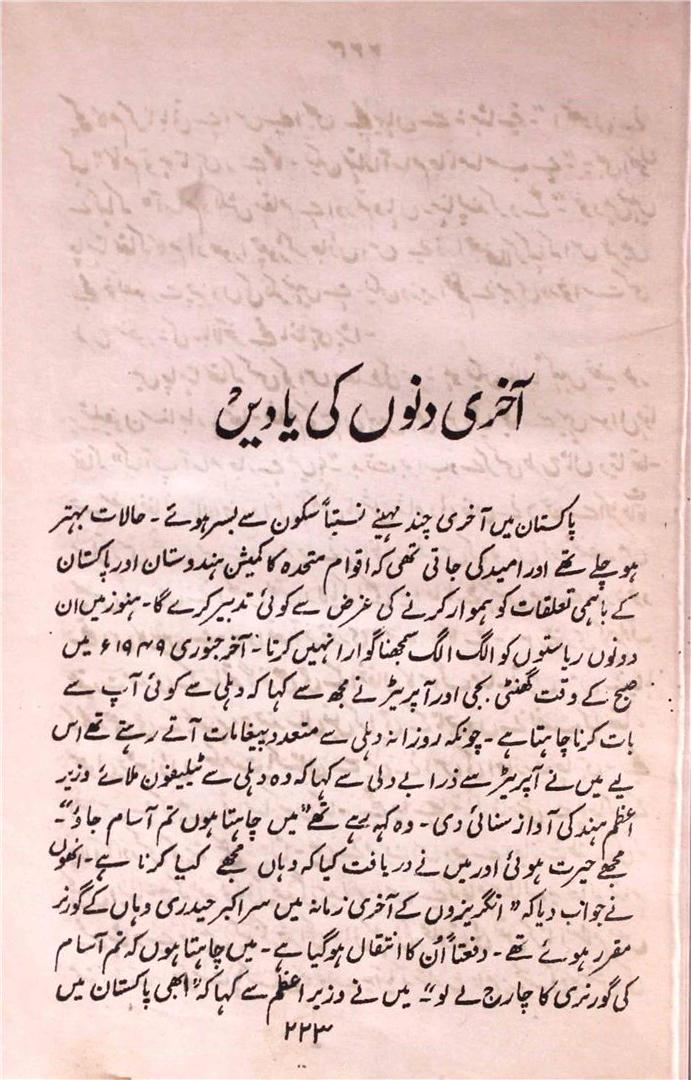 آخری دنوں کی یادیں
پاکستان میں آخری چند مہینے نسبتاً سکون سے بسر ہوئے۔ حالات بہتر
ہو چلے تھے اور امید کی جاتی تھی کہ اقوام متحدہ کا کمیشن ہندوستان اور پاکستان
کے باہمی تعلقات کو ہموار کرنے کی غرض سے کوئی تدبیر کرے گا۔ ہنوز میں ان
دونوں ریاستوں کو الگ الگ سمجھنا گوارا نہیں کرتا۔ آخر جنوری ۱۹۴۹ء میں
صبح کے وقت گھنٹی بجی اور آپریٹر نے مجھ سے کہا کہ دہلی سے کوئی آپ سے
بات کرنا چاہتا ہے۔ چونکہ روزانہ دہلی سے متعدد پیغامات آتے رہتے تھے اس
لیے میں نے آپریٹر سے ذرا بے دلی سے کہا کہ وہ دہلی سے ٹیلیفون ملائے وزیر
اعظم ہند کی آواز سنائی دی۔ وہ کہہ رہے تھے "میں چاہتا ہوں تم آسام جاؤ"۔
مجھے حیرت ہوئی اور میں نے دریافت کیا کہ وہاں مجھے کیا کرنا ہے۔ انھوں
نے جواب دیا کہ "انگریزوں کے آخری زمانہ میں سر اکبر حیدری وہاں کے گورنر
مقرر ہوئے تھے۔ دفعتاً اُن کا انتقال ہوگیا ہے۔ میں چاہتا ہوں کہ تم آسام
کی گورنری کا چارج لے لو"۔ میں نے وزیر اعظم سے کہا کہ "ابھی پاکستان میں
۲۲۳